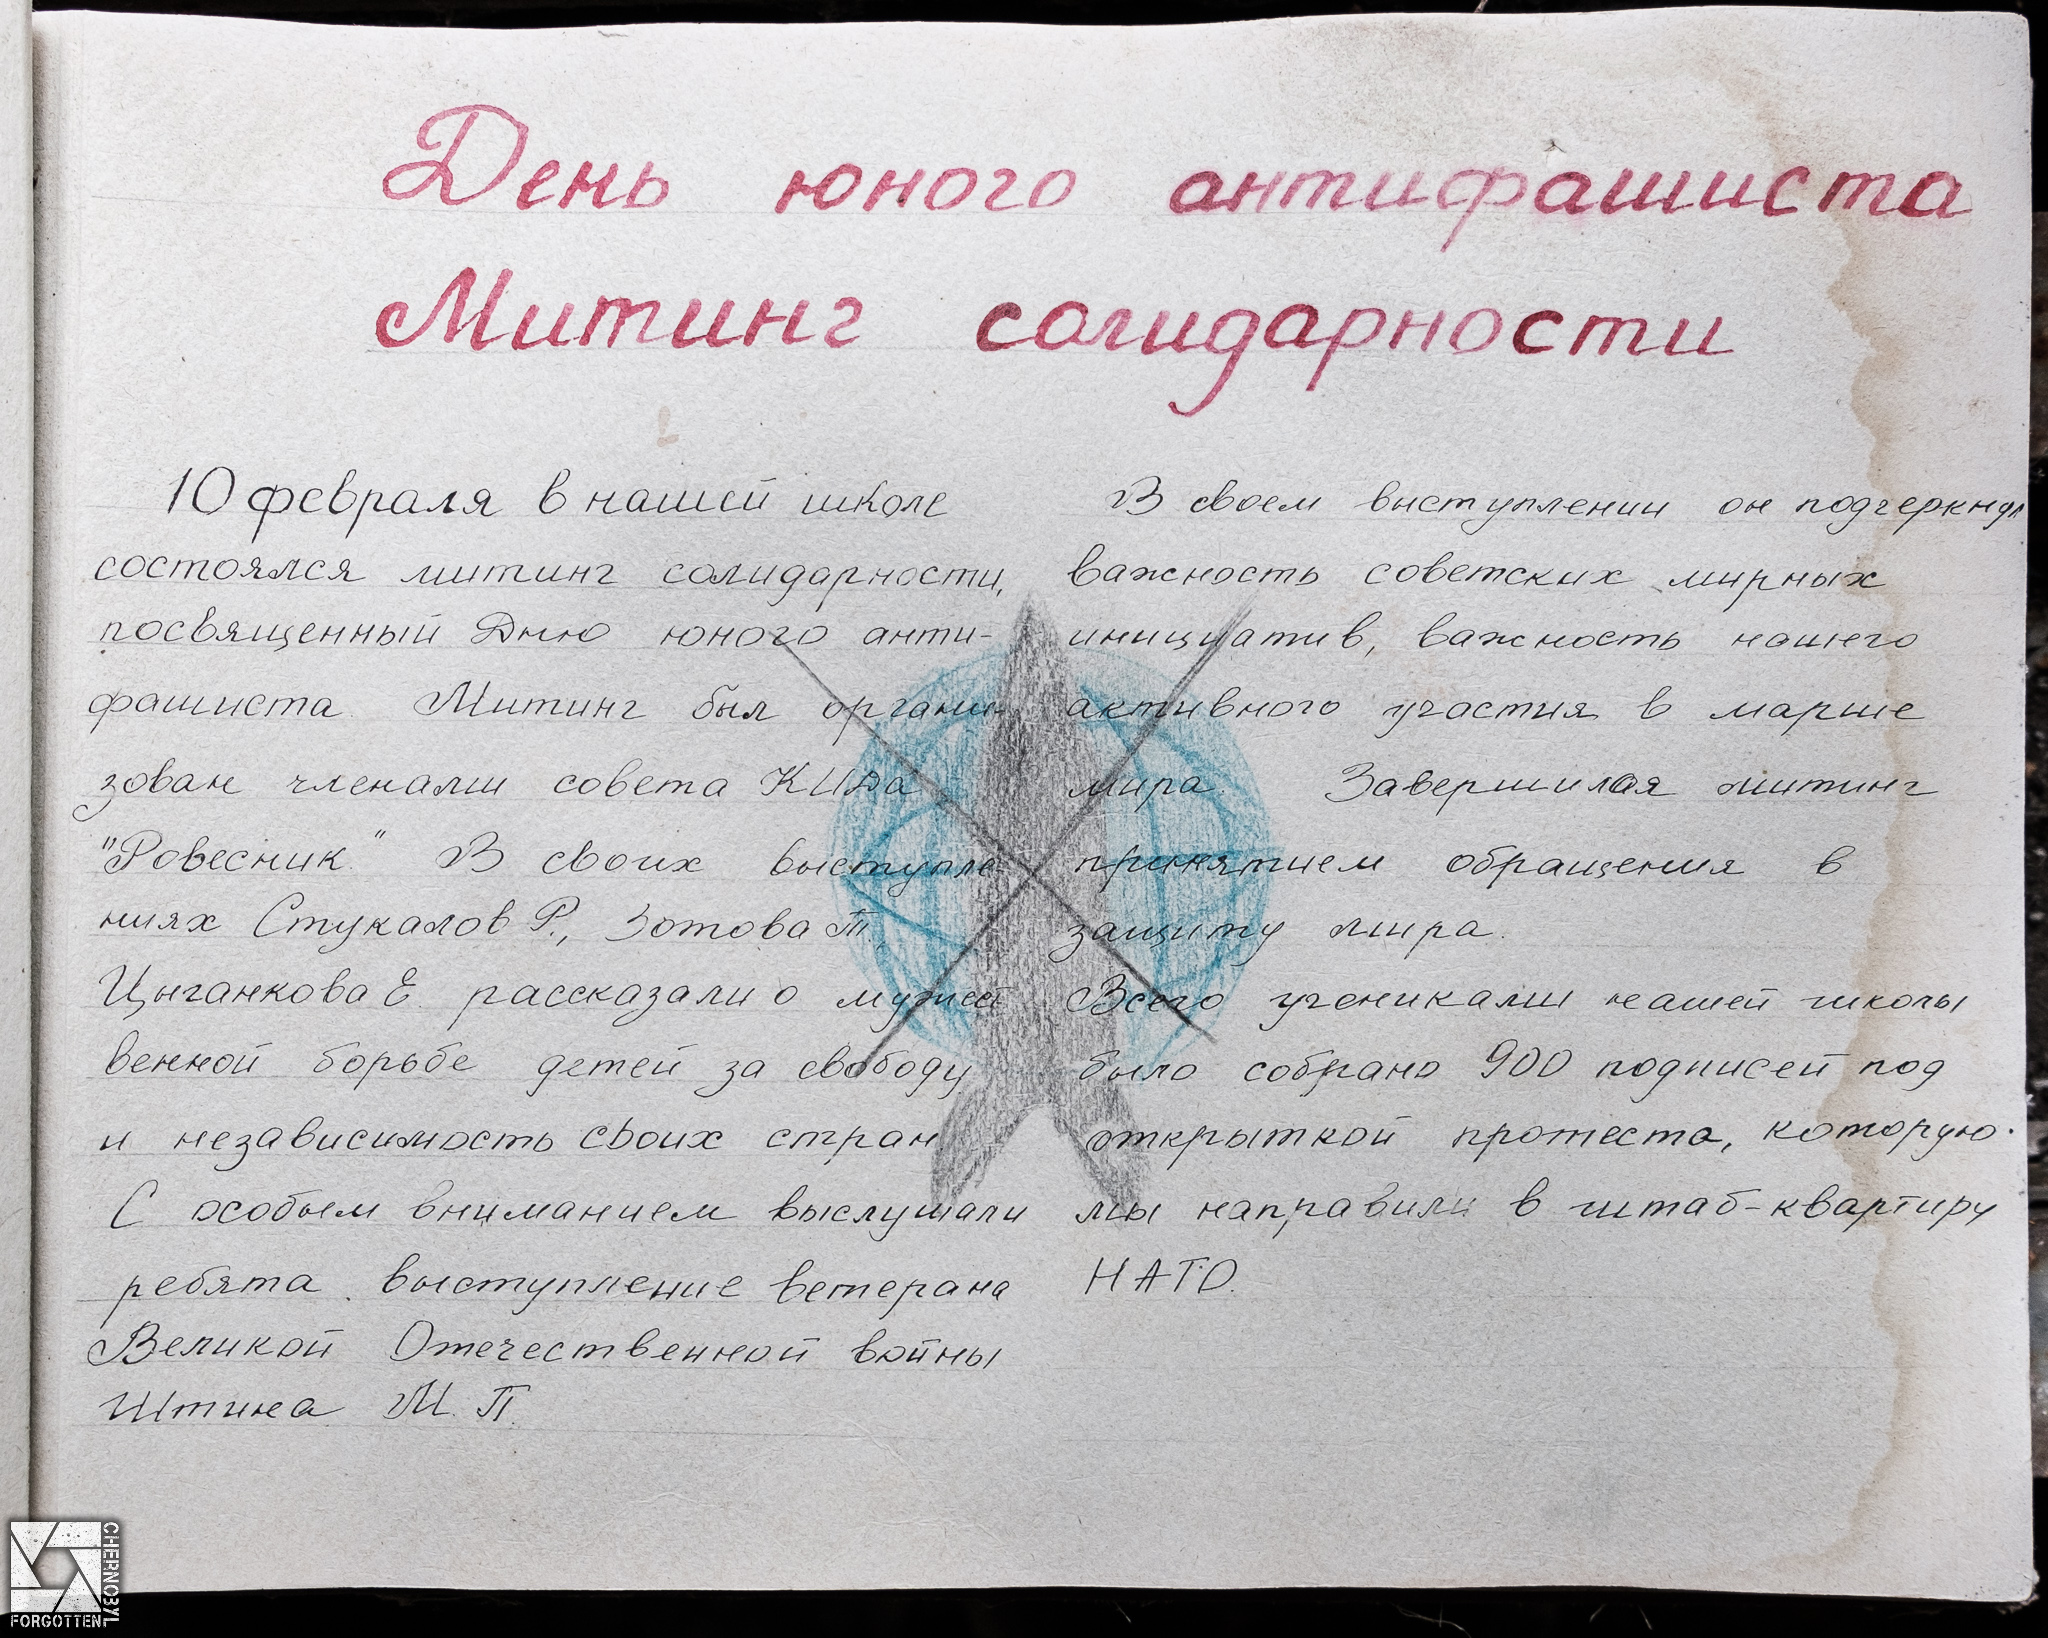 День юного антифашиста
Митинг солидарности
10 февраля в нашей школе
состоялся митинг солидарности,
посвященный Дню юного анти-
фашиста. Митинг был органи-
зован членами совета КИДа
"Ровесник." В своих выступле-
ниях Стукалов Р., Зотова Т.,
Цыганкова Е. рассказали о мужест
венной борьбе детей за свободу
и независимость своих стран.
С особым вниманием выслушали
ребята выступление ветерана
Великой Отечественной войны
Штина М.П.
В своем выступлении он подчеркнул
важность советских мирных
инициатив, важность нашего
активного участия в марше
мира. Завершился митинг
принятием обращения в
защиту мира.
Всего учениками нашей школы
было собрано 900 подписей под
открыткой протеста, которую
мы направили в штаб-квартиру
НАТО.
CHERNO3YL
FORGOTTEN